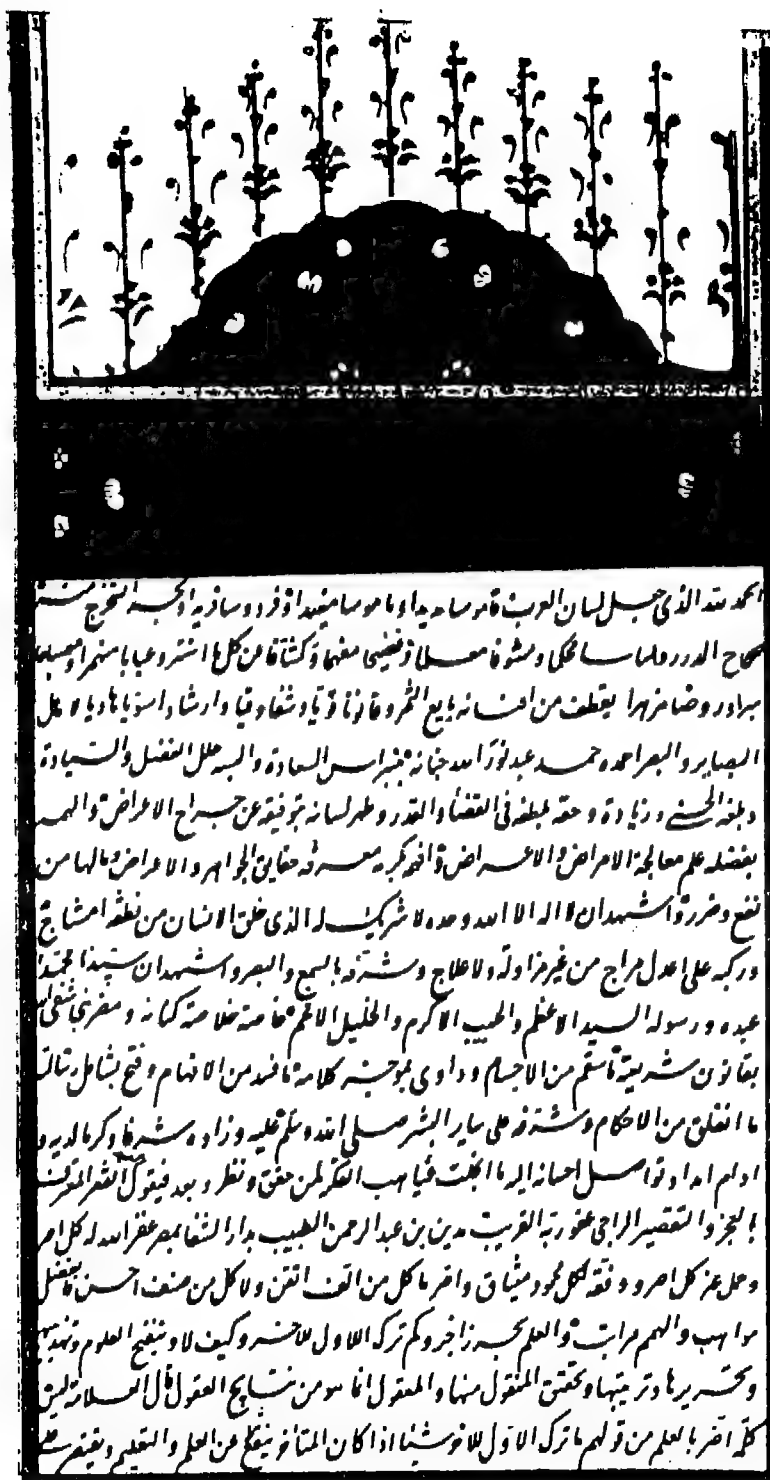 الحمد لله الذى جعل لسان العرب قاموسا مديدا وناموسا مفيدا وفردوسا فريدا ولجة استخرج منه
صحاح الدرر ولباسا محكما ومشوفا معلما وفصيحا مفهما وكشافا عن كل ما استتر وعبابا منهمرا ومصباحا
مبادر وضا مزهرا يقطف من افنانه يانع الثمر وقانونا قويا وشفاء وفيا وارشادا سويا هاديا لاهل
البصاير والبصر احمده حمد عبد نور الله جنانه بنبراس السعادة والبسه حلل الفضل والسيادة
وبلغه الحسنى وزيادة وحفه بلطفه فى القضاء والقدر وطهر لسانه بتوفيقه عن جراح الاعراض والهمه
بفضله علم معالجة الامراض والاعراض وافهمه بكرمه معرفة حقايق الجواهر والاعراض ومالها من
نفع وضرر واشهد ان لا اله الا الله وحده لا شريك له الذى خلق الانسان من نطفة امشاج
وركبه على اعدل مزاج من غير مزاولة ولا علاج وشرفه بالسمع والبصر واشهد ان سيدنا محمدا
عبده ورسوله السيد الاعظم والحبيب الاكرم والخليل الافخم خاصة خلاصة كنانه ومضر نبى شفى الله
بقانون شريعته ما سقم من الاجسام وداوى بموجز كلامه ما فسد من الافهام وفتح بشامل رسالته
ما انغلق من الاحكام وشرفه على ساير البشر صلى الله وسلم عليه وزاده شرفا وكرما لديه و
ادام امداد تواصل احسانه اليه ما انجلت غياهب الفكر لمن حقق ونظر وبعد فيقول الفقير المعترف
بالعجز والتقصير الراجى عفو ربه القريب مدين بن عبد الرحمن الطبيب بدار الشفا بمصر غفر الله له كل اصر
وحل عنه كل اصر ووفقه لكل محمود ميثاق واصر ما كل من الف اتقن ولا كل من صنف احسن فالفضل
مواهب والهمم مراتب والعلم بحر زاخر وكم ترك الاول للاخر وكيف لا وتنقيح العلوم وتهذيبها
وتحريرها وترتيبها وتحقيق المنقول منها والمعقول انما هو من نتايج العقول قال العلامة ليس
كلمة اضر بالعلم من قولهم ما ترك الاول للاخر شيئا اذا كان المتاخر ينقطع عن العلم والتعليم ويقتصر على